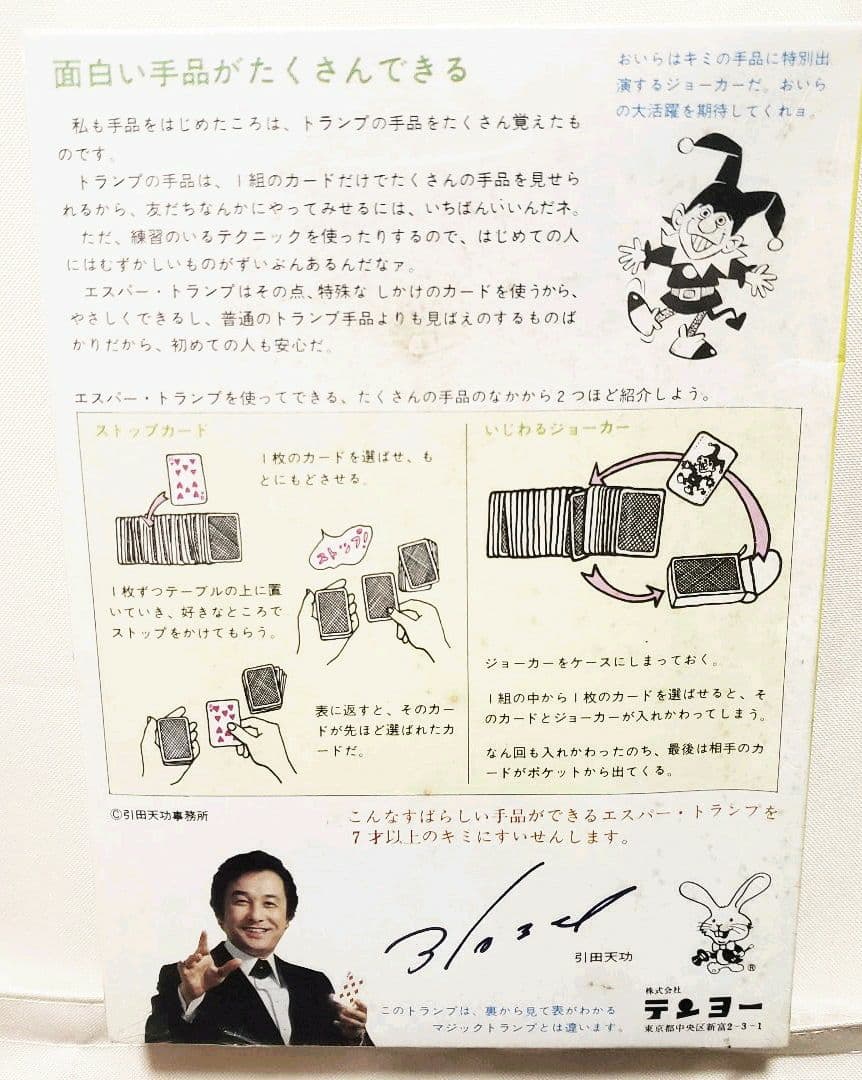 面白い手品がたくさんできる
おいらはキミの手品に特別出
演するジョーカーだ。おいら
の大活躍を期待してくれョ。
私も手品をはじめたころは、トランプの手品をたくさん覚えたも
のです。
トランプの手品は、1組のカードだけでたくさんの手品を見せら
れるから、友だちなんかにやってみせるには、いちばんいいんだネ。
ただ、練習のいるテクニックを使ったりするので、はじめての人
にはむずかしいものがずいぶんあるんだなァ。
エスパー・トランプはその点、特殊な しかけのカードを使うから、
やさしくできるし、普通のトランプ手品よりも見ばえのするものば
かりだから、初めての人も安心だ。
エスパー・トランプを使ってできる、たくさんの手品のなかから2つほど紹介しよう。
ストップカード
1枚のカードを選ばせ、も
とにもどさせる。
ストップ!
1枚ずつテーブルの上に置
いていき、好きなところで
ストップをかけてもらう。
表に返すと、そのカー
ドが先ほど選ばれたカ
ードだ。
いじわるジョーカー
ジョーカーをケースにしまっておく。
1組の中から1枚のカードを選ばせると、そ
のカードとジョーカーが入れかわってしまう。
なん回も入れかわったのち、最後は相手のカ
ードがポケットから出てくる。
©引田天功事務所
こんなすばらしい手品ができるエスパー・トランプを
7才以上のキミにすいせんします。
引田天功
®
このトランプは、裏から見て表がわかる
マジックトランプとは違います。
株式会社
テンヨー
東京都中央区新富2-3-1